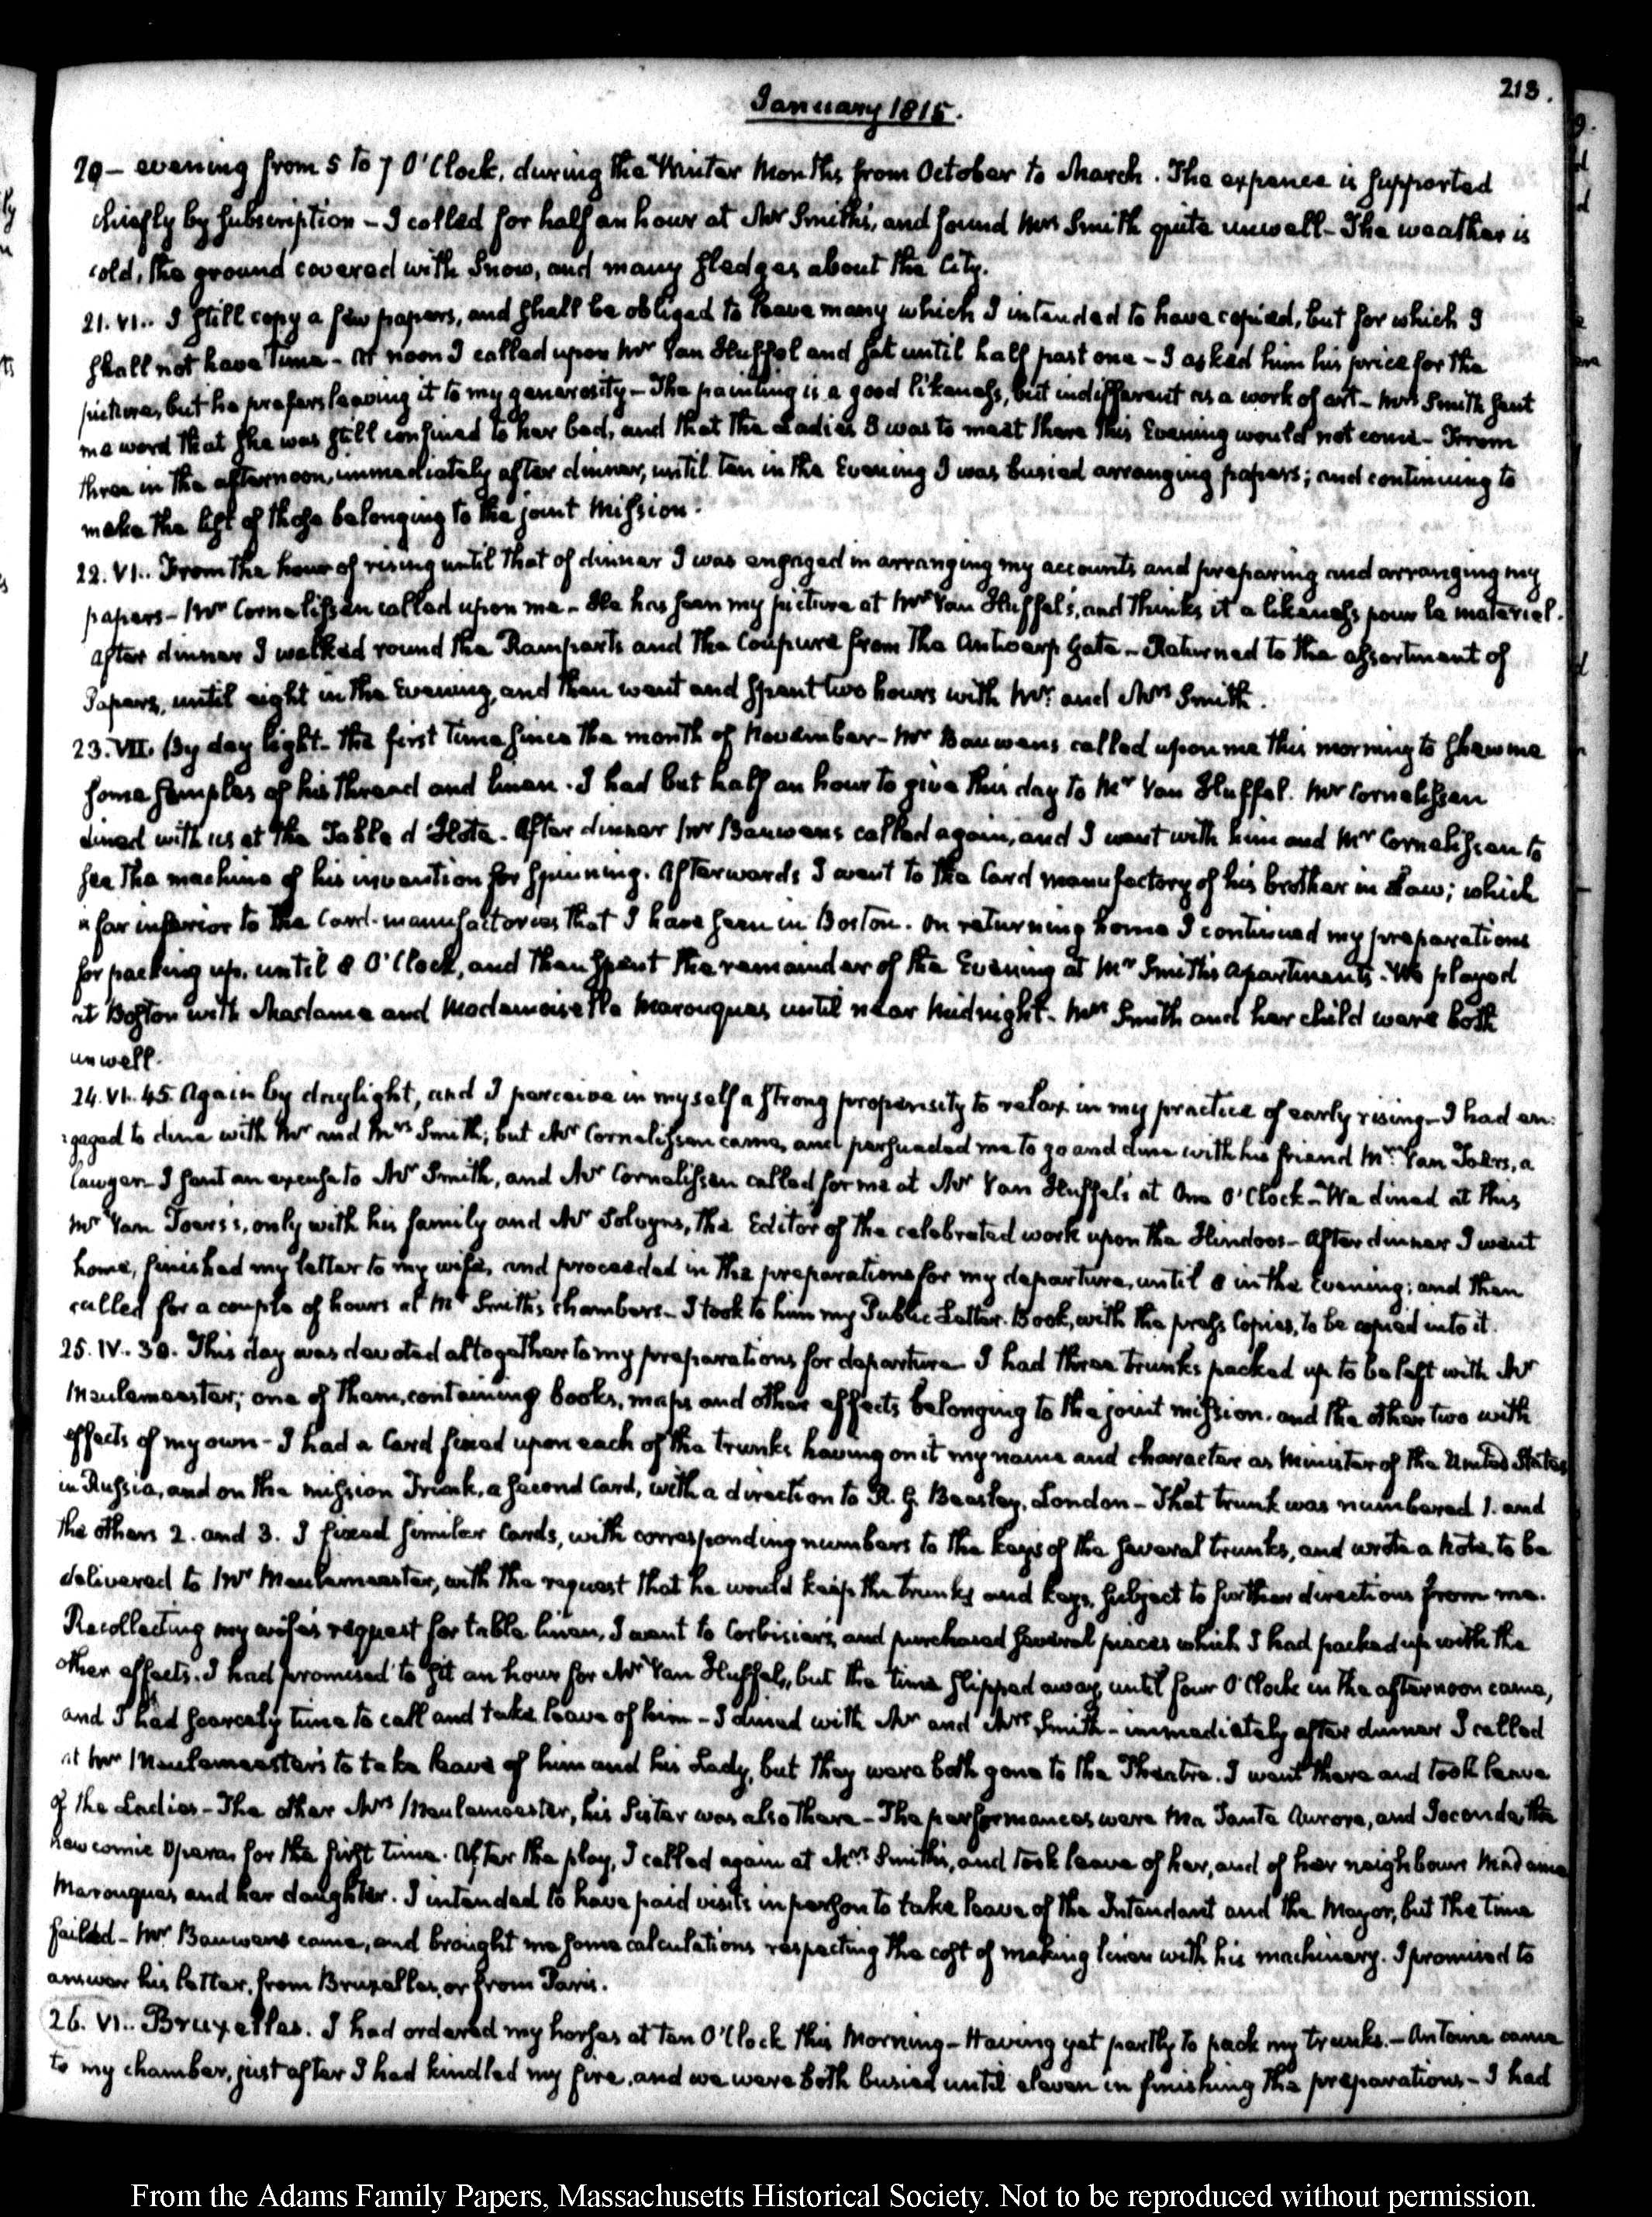 213.
January 1815.
20 — evening from 5 to 7 O'Clock, during the Winter Months from October to March. The expence is supported
chiefly by subscription — I called for half an hour at Mr Smith's, and found Mrs Smith quite unwell — The weather is
cold, the ground covered with Snow, and many sledges about the City.
21. VI.. I still copy a few papers, and shall be obliged to leave many which I intended to have copied, but for which I
shall not have Time — At noon I called upon Mr Van Huffel and sat until half past one — I asked him his price for the
picture, but he prefers leaving it to my generosity — The painting is a good likeness, but indifferent as a work of art — Mrs Smith sent
me word that she was still confined to her bed, and that the Ladies I was to meet there this Evening would not come — From
three in the afternoon, immediately after dinner, until ten in the Evening I was busied arranging papers; and continuing to
make the list of those belonging to the joint Mission.
22. VI.. From the hour of rising until that of dinner I was engaged in arranging my accounts and preparing and arranging my
papers — Mr Cornelissen called upon me — He has seen my picture at Mr Van Huffel's, and thinks it a likeness pour le materiel.
After dinner I walked round the Ramparts and the Coupure from the Antwerp Gate — Returned to the assortment of
Papers, until eight in the Evening, and then went and spent two hours with Mr and Mrs Smith.
23. VII. By day light — the first time since the month of November — Mr Bauwens called upon me this morning to shew me
some samples of his thread and linen. I had but half an hour to give this day to Mr Van Huffel. Mr Cornelissen
dined with us at the Table d'Hote. After dinner Mr Bauwens called again, and I went with him and Mr Cornelissen to
see the machine of his invention for spinning. Afterwards I went to the Card manufactory of his brother in Law; which
is far inferior to the Card-manufactories that I have seen in Boston. On returning home I continued my preparations
for packing up, until 8 O'Clock, and then spent the remainder of the Evening at Mr Smith's apartments. We played
at Boston with Madame and Mademoiselle Marouques until near Midnight. Mrs Smith and her child were both
unwell.
24. VI. 45. Again by daylight, and I perceive in myself a strong propensity to relax in my practice of early rising — I had en-
:gaged to dine with Mr and Mrs Smith; but Mr Cornelissen came, and persuaded me to go and dine with his friend Mr Van Toers, a
lawyer — I sent an excuse to Mr Smith, and Mr Cornelissen called for me at Mr Van Huffel's at One O'Clock — We dined at this
Mr Van Toers's, only with his family and Mr Solvyns, the Editor of the celebrated work upon the Hindoos — After dinner I went
home, finished my letter to my wife, and proceeded in the preparations for my departure, until 8 in the Evening; and then
called for a couple of hours at Mr Smith's chambers — I took to him my Public Letter-Book, with the press Copies, to be copied into it.
25. IV. 30. This day was devoted altogether to my preparations for departure — I had three trunks packed up to be left with Mr
Meulemeester; one of them, containing books, maps and other effects belonging to the joint mission, and the other two with
effects of my own — I had a Card fixed upon each of the trunks having on it my name and character as Minister of the United States
in Russia, and on the mission Trunk, a second Card, with a direction to R. G. Beasley, London — That trunk was numbered 1. and
the others 2. and 3. I fixed similar Cards, with corresponding numbers to the keys of the several trunks, and wrote a Note, to be
delivered to Mr Meulemeester, with the request that he would keep the trunks and keys, subject to further directions from me.
Recollecting my wife's request for table linen, I went to Corbisier's, and purchased several pieces which I had packed up with the
other effects. I had promised to sit an hour for Mr Van Huffel, but the time slipped away, until four O'Clock in the afternoon came,
and I had scarcely time to call and take leave of him — I dined with Mr and Mrs Smith — immediately after dinner I called
at Mr Meulemeester's to take leave of him and his Lady, but they were both gone to the Theatre. I went there and took leave
of the Ladies — The other Mrs Meulemeester, his Sister was also there — The performances were Ma Tante Aurore, and Joconde, the
new comic Opera, for the first time. After the play, I called again at Mrs Smith's, and took leave of her, and of her neighbours Madame
Marouques and her daughter. I intended to have paid visits in person to take leave of the Intendant and the Mayor, but the time
failed — Mr Bauwens came, and brought me some calculations respecting the cost of making linen with his machinery. I promised to
answer his letter, from Bruxelles, or from Paris.
26. VI.. Bruxelles. I had ordered my horses at ten O'Clock this Morning — Having yet partly to pack my trunks. — Antoine came
to my chamber, just after I had kindled my fire, and we were both busied until eleven in finishing the preparations — I had
From the Adams Family Papers, Massachusetts Historical Society. Not to be reproduced without permission.